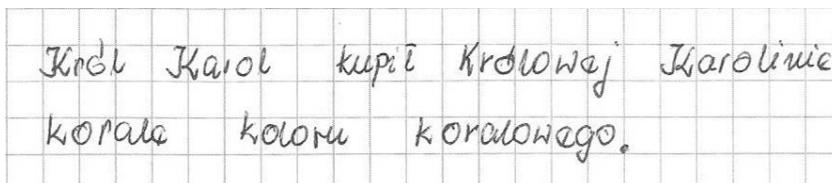 Król Karol kupił Królowej Karolinie
korale koloru koralowego.